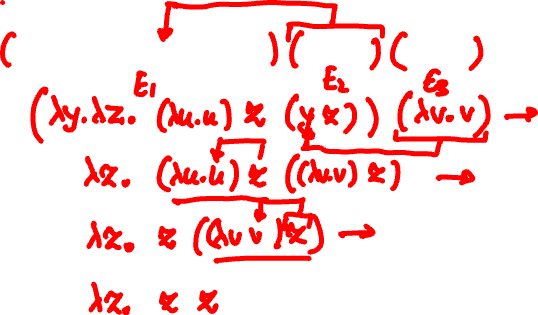 ( ) ( ) ( )
E₁ E₂ E₃
(λy.λz. (λu.u) z (y z)) (λv.v) →
λz. (λu.u) z ((λv.v) z) →
λz. z ((λv v) z) →
λz. z z